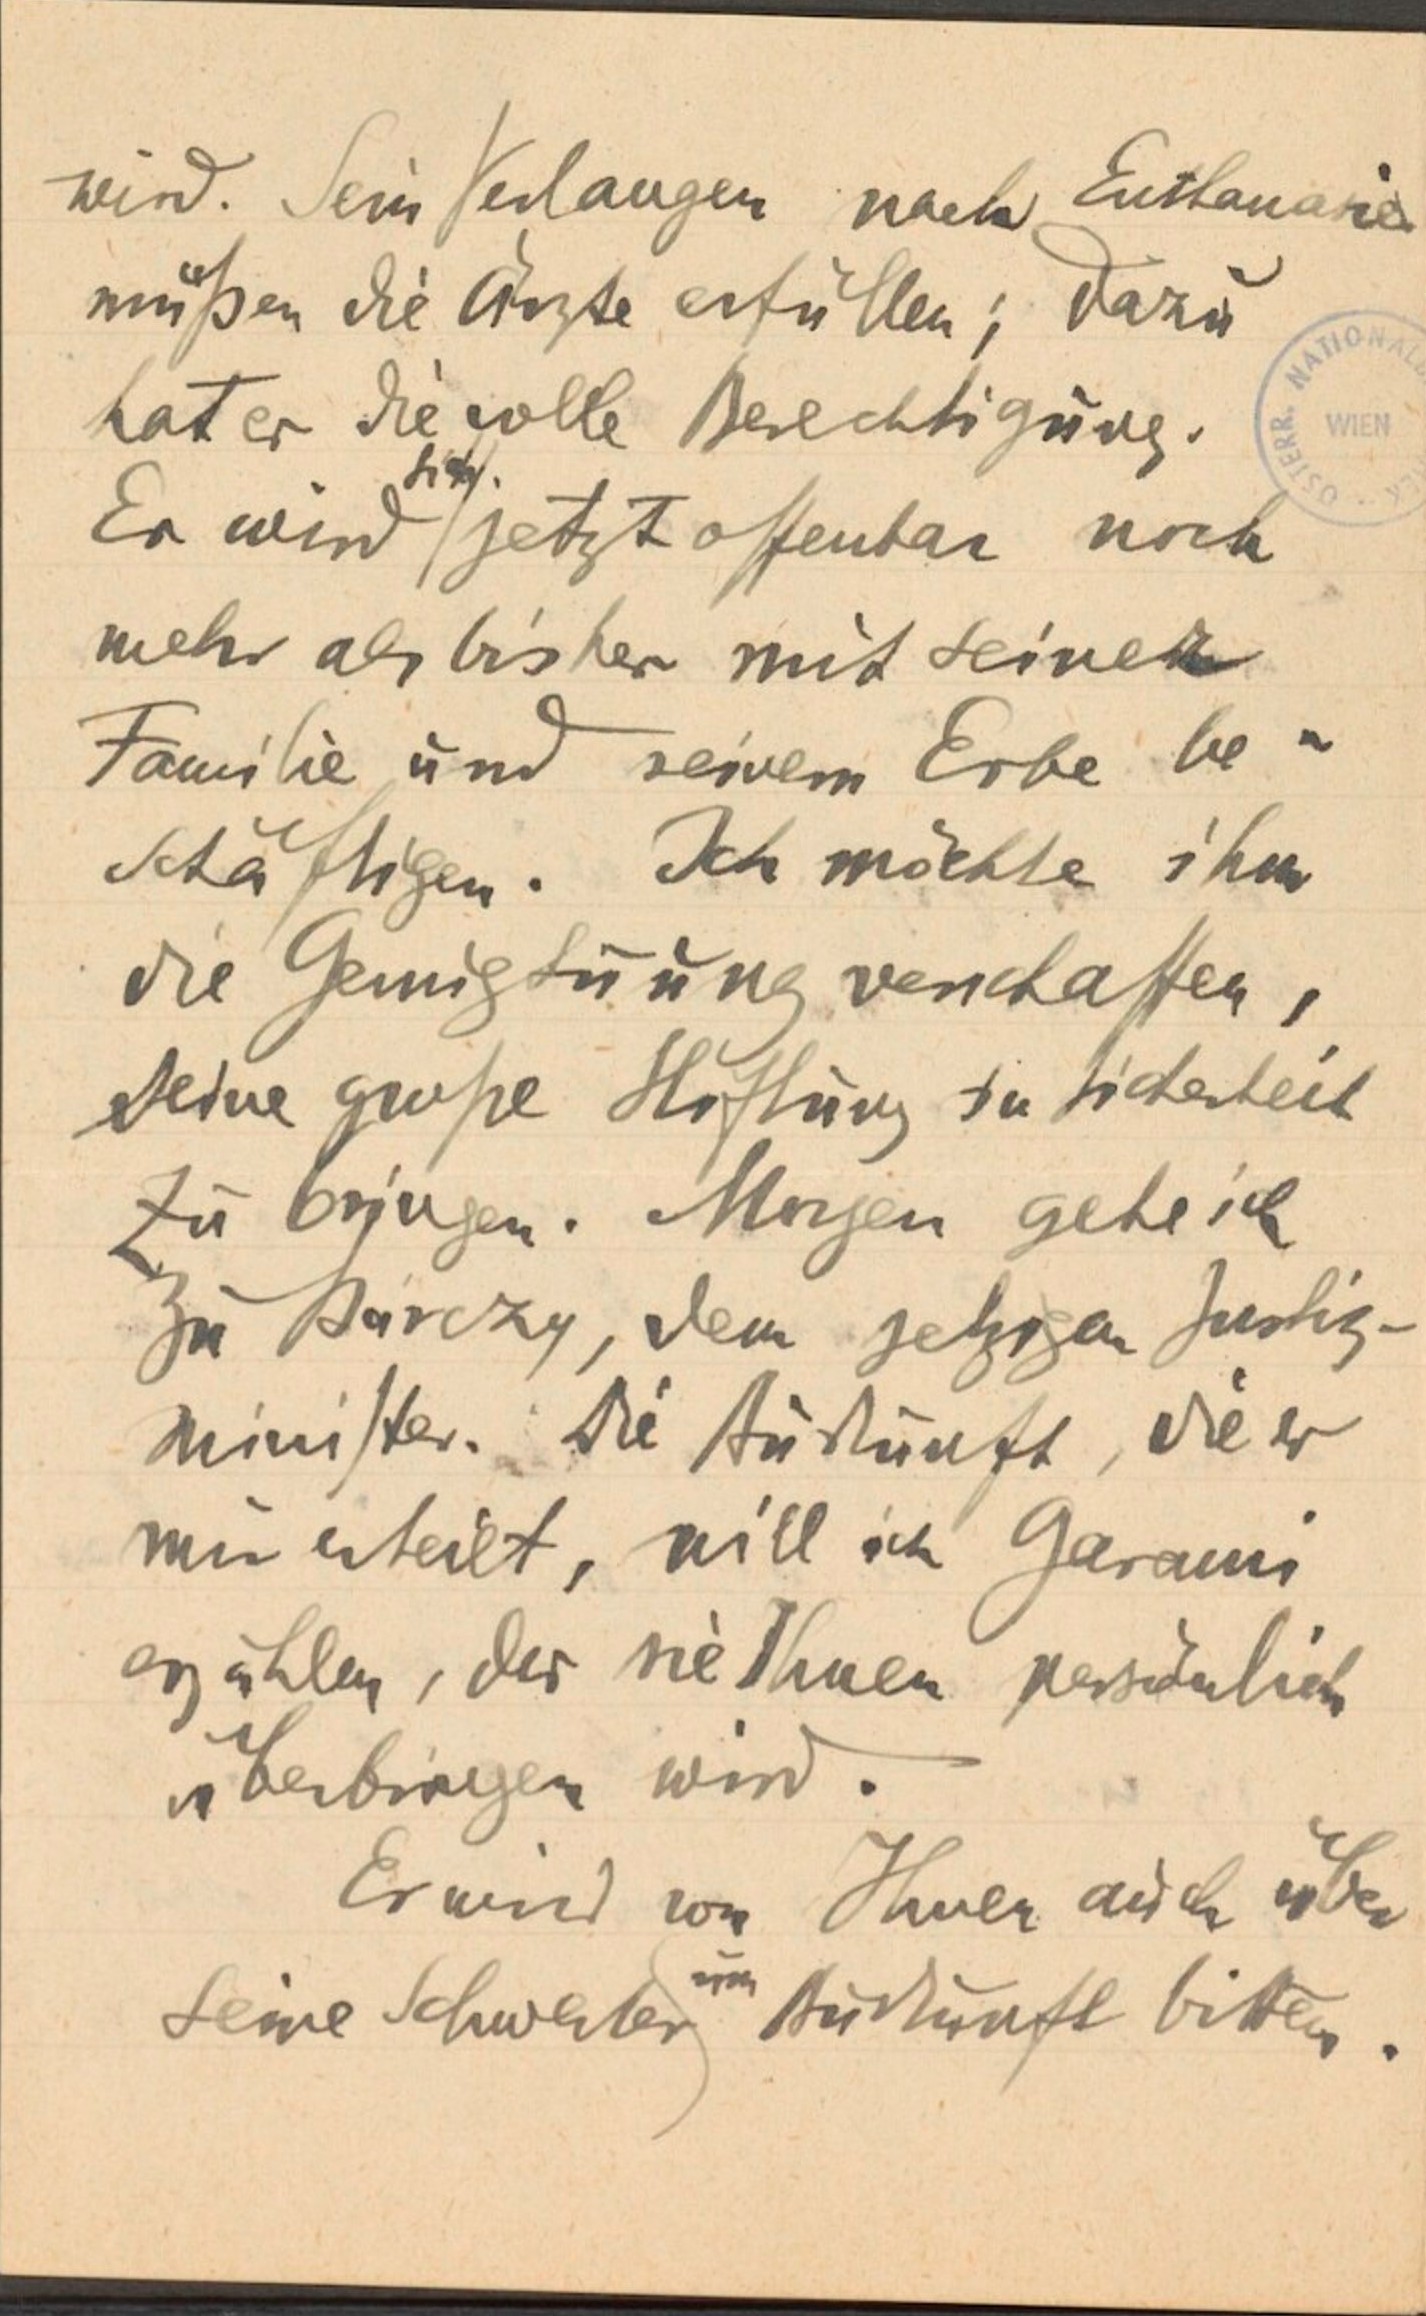 wird. Sein Verlangen nach Euthanasie
müßen die Ärzte erfüllen; dazu
hat er die volle Berechtigung.
Er wird sich jetzt offenbar noch
mehr als bisher mit seiner
Familie und seinem Erbe be-
schäftigen. Ich möchte ihm
die Genugtuung verschaffen,
seine große Stiftung in Sicherheit
zu bringen. Morgen gehe ich
zu Bárczy, dem jetzigen Justiz-
minister. Die Auskunft, die er
mir erteilt, will ich Garami
erzählen, der sie Ihnen persönlich
überbringen wird.
Er wird von Ihnen auch über
seine Schwester um Auskunft bitten.
ÖSTERR. NATIONAL
WIEN